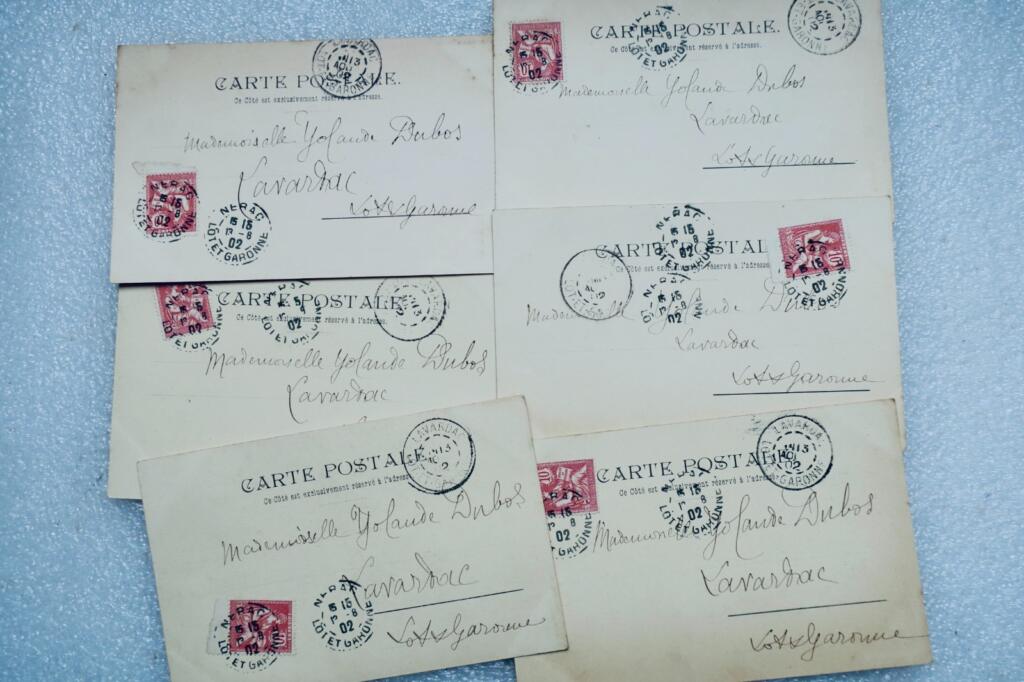 CARTE POSTALE.
Ce Côté est exclusivement réservé à l'adresse.
Mademoiselle Yolande Dubos
Lavardac
Lot & Garonne
10
NERAC
15
02
LOT ET GARONNE
NERAC
15
8
02
LOT ET GARONNE
CARTE POSTALE.
Ce Côté est exclusivement réservé à l'adresse.
Mademoiselle Yolande Dubos
Lavardac
Lot & Garonne
NERAC
15
02
LOT ET GARONNE
NERAC
15
8
02
LOT ET GARONNE
CARTE POSTALE
réservé à l'adresse.
Mademoiselle Yolande Dubos
Lavardac
CARTE POSTAL
Ce Côté est exclusivement réservé à l'adresse
Mademoiselle Yolande Dubos
Lavardac
Lot & Garonne
NERAC
15
8
02
LOT ET GARONNE
CARTE POSTALE
Ce Côté est exclusivement réservé à l'adresse.
LAVARDAC
13
Mademoiselle Yolande Dubos
Lavardac
Lot & Garonne
NERAC
15
8
02
LOT ET GARONNE
CARTE POSTALE
Ce Côté est exclusivement réservé à l'adresse.
LAVARDAC
13
02
Mademoiselle Yolande Dubos
Lavardac
Lot & Garonne
NERAC
15
8
02
LOT ET GARONNE